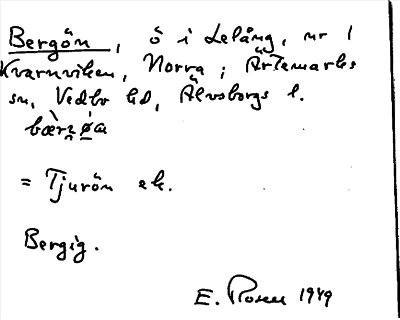 Bergön, ö i Lelång, nr 1
Kvarnviken, Norra i Ärtemarks
sn, Vedbo hd, Älvsborgs l.
= Tjurön ek.
Bergig.
E. Rosen 1949